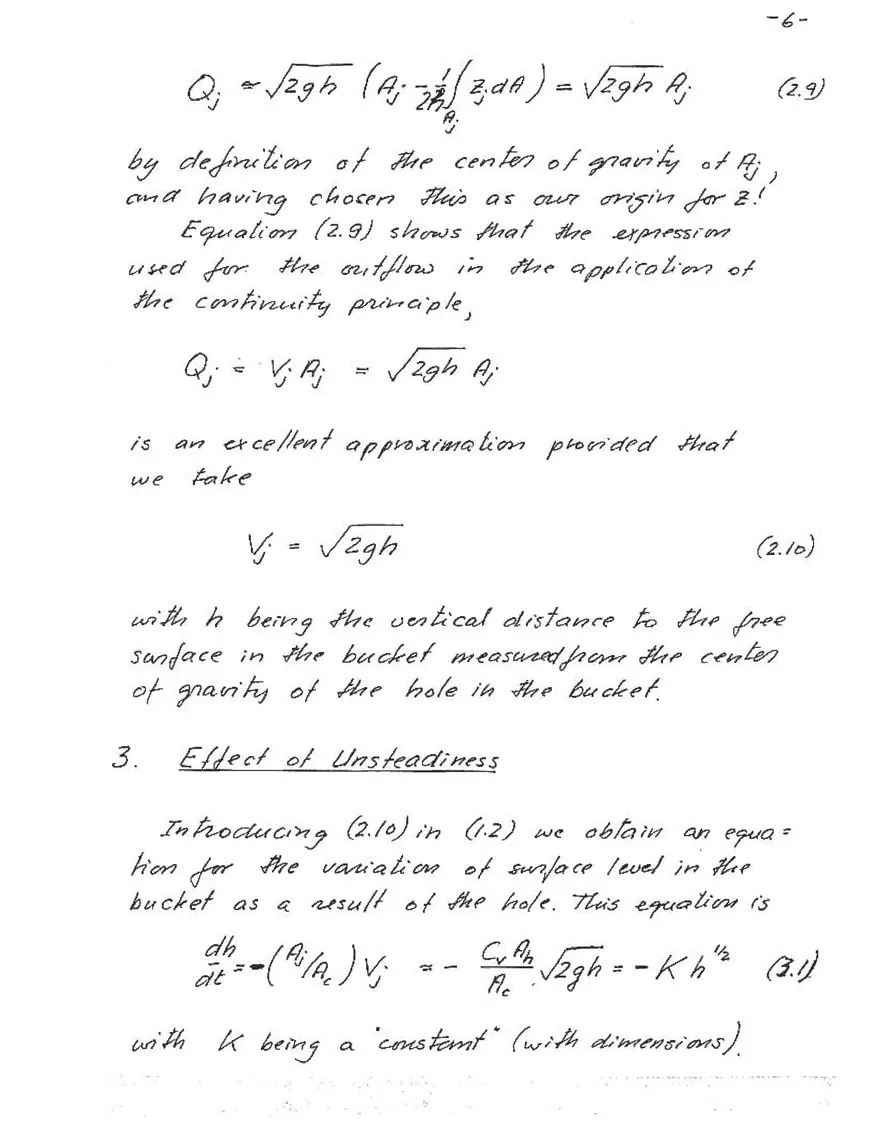 -6-
Qj ≃ √2gh (Aj - 1/2h ∫Aj zj dA) = √2gh Aj (2.9)
by definition of the center of gravity of Aj,
and having chosen this as our origin for z!
Equation (2.9) shows that the expression
used for the outflow in the application of
the continuity principle,
Qj = Vj Aj = √2gh Aj
is an excellent approximation provided that
we take
Vj = √2gh (2.10)
with h being the vertical distance to the free
surface in the bucket measured from the center
of gravity of the hole in the bucket.
3. Effect of Unsteadiness
Introducing (2.10) in (1.2) we obtain an equa=
tion for the variation of surface level in the
bucket as a result of the hole. This equation is
dh/dt = -(Aj/Ac) Vj = - Cv Ah/Ac √2gh = - K h^1/2 (3.1)
with K being a "constant" (with dimensions).